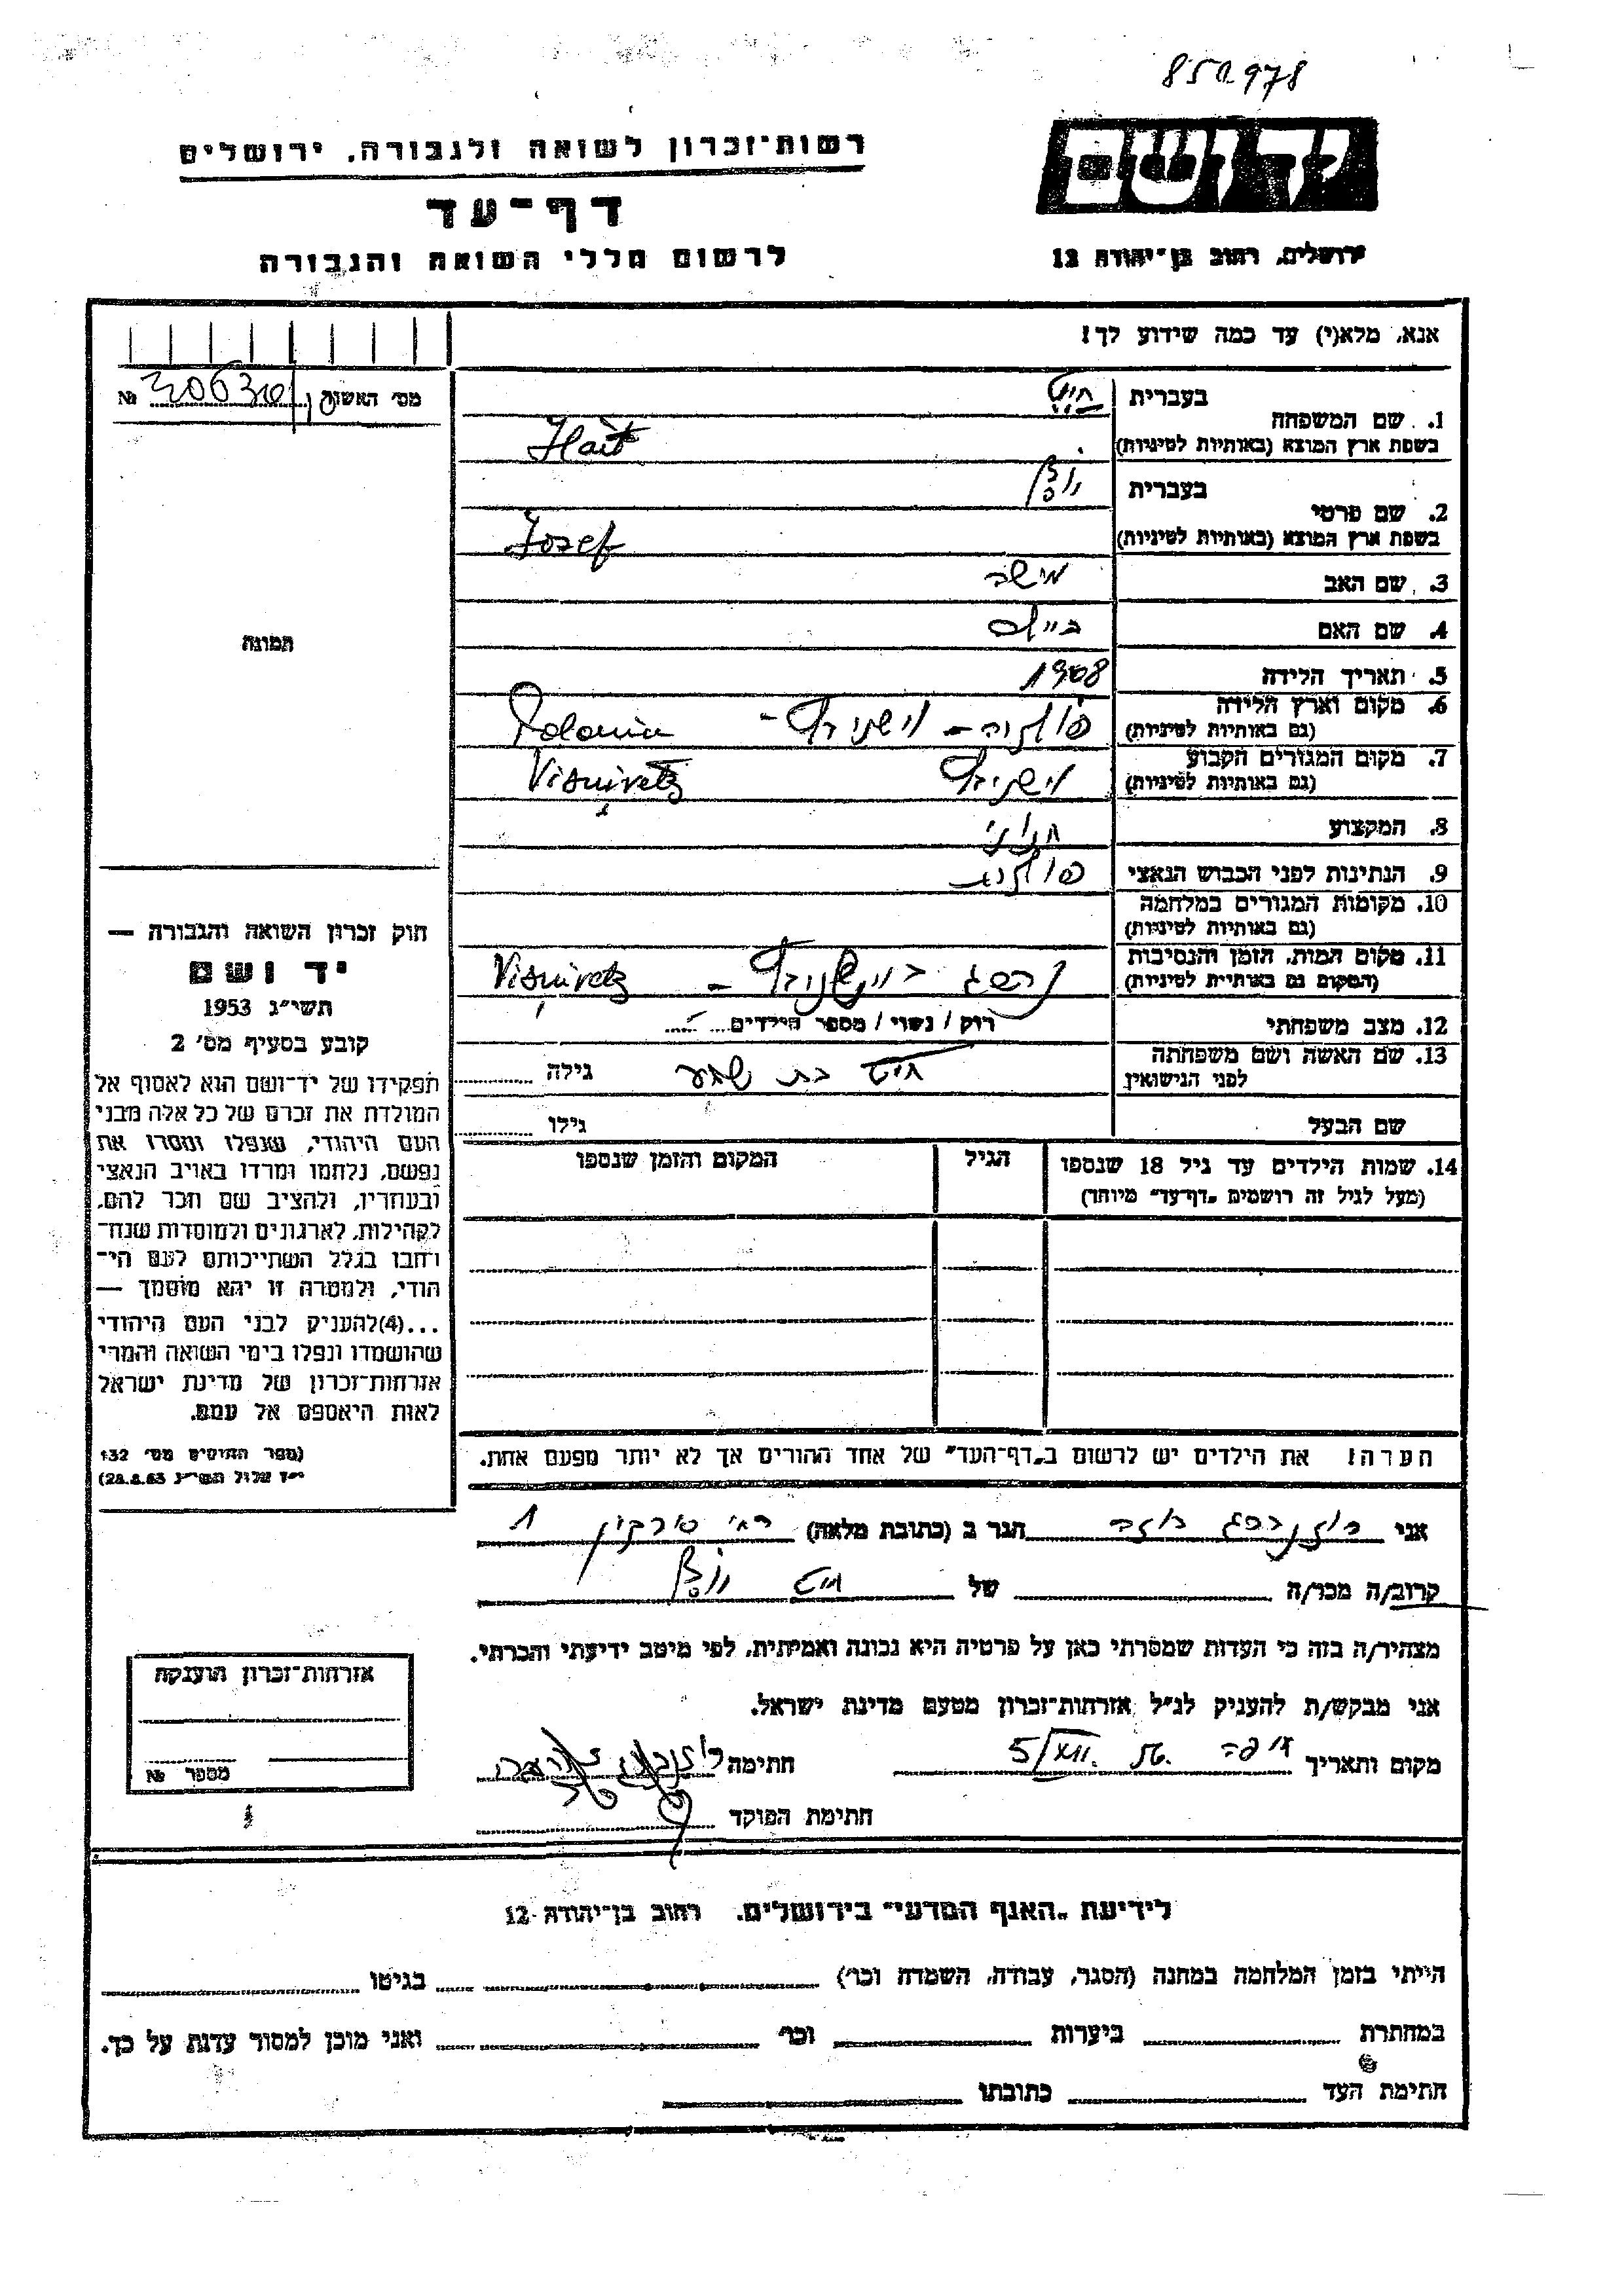 850978
יד ושם
ירושלים, רחוב בן־יהודה 12
רשות־זכרון לשואה ולגבורה, ירושלים
דף־עד
לרשום חללי השואה והגבורה
אנא, מלא(י) עד כמה שידוע לך!
מס׳ האשה № 306310
1. שם המשפחה
בעברית חייט
בשפת ארץ המוצא (באותיות לטיניות) Hait
2. שם פרטי
בעברית יוסף
בשפת ארץ המוצא (באותיות לטיניות) Jozef
3. שם האב משה
4. שם האם
5. תאריך הלידה 1908
6. מקום וארץ הלידה
(גם באותיות לטיניות) פולניה – וישניבץ – Polonia
7. מקום המגורים הקבוע
(גם באותיות לטיניות) וישניבץ Visnivetz
8. המקצוע חנוני
9. הנתינות לפני הכבוש הנאצי פולנית
10. מקומות המגורים במלחמה
(גם באותיות לטיניות)
11. מקום המות, הזמן והנסיבות
(המקום גם באותיות לטיניות) נהרג בוישניבץ – Visnivetz
12. מצב משפחתי רווק / נשוי / מספר הילדים
13. שם האשה ושם משפחתה
לפני הנישואין חייט בת שבע גילה
שם הבעל גילו
14. שמות הילדים עד גיל 18 שנספו
(מעל לגיל זה רושמים „דף־עד״ מיוחד)
הגיל
המקום והזמן שנספו
הערה! את הילדים יש לרשום ב„דף־העד״ של אחד ההורים אך לא יותר מפעם אחת.
תמונה
חוק זכרון השואה והגבורה —
יד ושם
תשי״ג 1953
קובע בסעיף מס׳ 2
תפקידו של יד־ושם הוא לאסוף אל
המולדת את זכרם של כל אלה מבני
העם היהודי, שנפלו ומסרו את
נפשם, נלחמו ומרדו באויב הנאצי
ובעוזריו, ולהציב שם וזכר להם,
לקהילות, לארגונים ולמוסדות שנח־
רבו בגלל השתייכותם לעם הי־
הודי, ולמטרה זו יהא מוסמך —
...(4) להעניק לבני העם היהודי
שהושמדו ונפלו בימי השואה והמרי
אזרחות־זכרון של מדינת ישראל
לאות היאספם אל עמם.
(ספר החוקים מס׳ 132
י״ז אלול תשי״ג 28.8.53)
אני רוזנברג הגר ב (כתובת מלאה) סירקין 1
קרוב/ה מכר/ה של חייט יוסף
מצהיר/ה בזה כי העדות שמסרתי כאן על פרטיה היא נכונה ואמיתית, לפי מיטב ידיעתי והכרתי.
אני מבקש/ת להעניק לנ״ל אזרחות־זכרון מטעם מדינת ישראל.
מקום ותאריך חיפה 5/XII. חתימה
חתימת הפוקד
אזרחות־זכרון הוענקה
מספר №
לידיעת „האגף המדעי״ בירושלים, רחוב בן־יהודה 12
הייתי בזמן המלחמה במחנה (הסגר, עבודה, השמדה וכו׳) בגיטו
במחתרת ביערות וכו׳ ואני מוכן למסור עדות על כך.
חתימת העד כתובתו